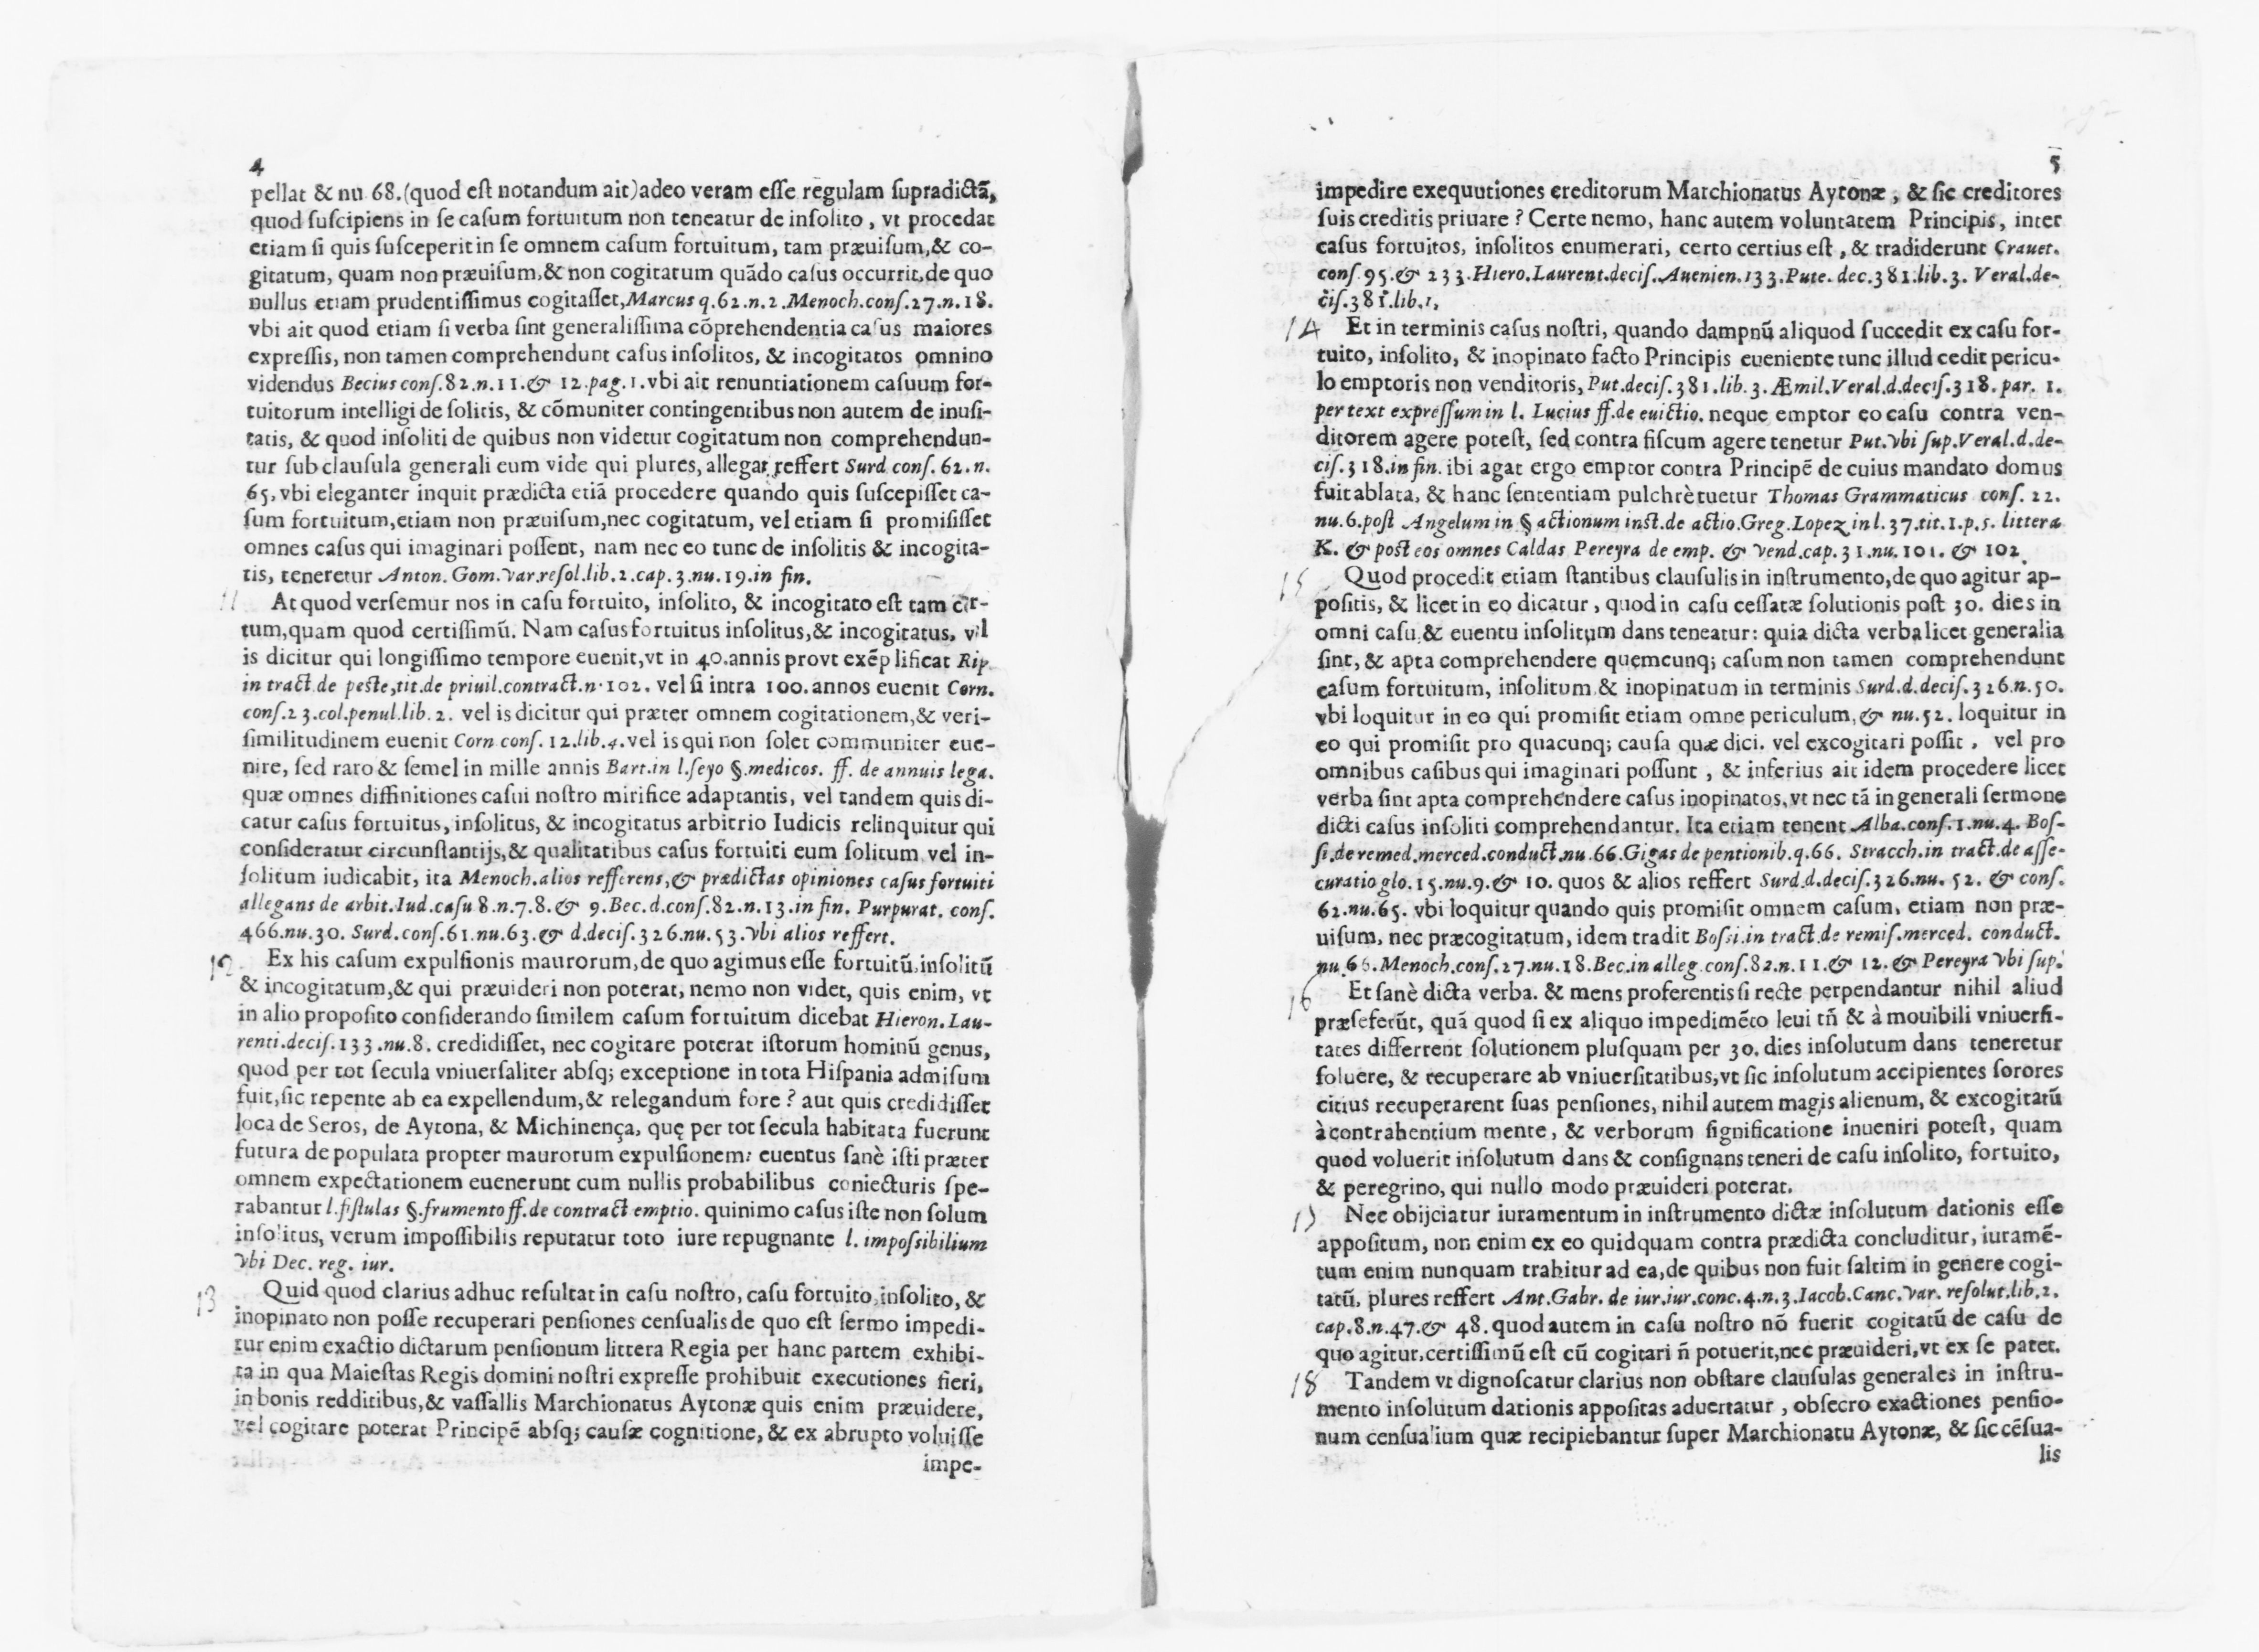 4
pellat & nu 68.(quod eſt notandum ait)adeo veram eſſe regulam ſupradictã,
quod ſuſcipiens in ſe caſum fortuitum non teneatur de inſolito, vt procedat
etiam ſi quis ſuſceperit in ſe omnem caſum fortuitum, tam præuiſum,& co-
gitatum, quam non præuiſum,& non cogitatum quãdo caſus occurrit,de quo
nullus etiam prudentiſſimus cogitaſſet,Marcus q.62.n.2.Menoch.conſ.27.n.18.
vbi ait quod etiam ſi verba ſint generaliſſima cõprehendentia caſus maiores
expreſſis, non tamen comprehendunt caſus inſolitos, & incogitatos omnino
videndus Becius conſ.82.n.11.& 12.pag.1.vbi ait renuntiationem caſuum for-
tuitorum intelligi de ſolitis, & cõmuniter contingentibus non autem de inuſi-
tatis, & quod inſoliti de quibus non videtur cogitatum non comprehendun-
tur ſub clauſula generali eum vide qui plures, allegat reffert Surd conſ. 62. n.
65, vbi eleganter inquit prædicta etiã procedere quando quis ſuſcepiſſet ca-
ſum fortuitum,etiam non præuiſum,nec cogitatum, vel etiam ſi promiſiſſet
omnes caſus qui imaginari poſſent, nam nec eo tunc de inſolitis & incogita-
tis, teneretur Anton. Gom.var.reſol.lib.2.cap.3.nu.19.in fin.
11 At quod verſemur nos in caſu fortuito, inſolito, & incogitato eſt tam cer-
tum,quam quod certiſſimũ. Nam caſus fortuitus inſolitus,& incogitatus, vel
is dicitur qui longiſſimo tempore euenit,vt in 40.annis provt exẽplificat Rip.
in tract.de peſte,tit.de priuil.contract.n.102. vel ſi intra 100.annos euenit Corn.
conſ.23.col.penul.lib.2. vel is dicitur qui præter omnem cogitationem,& veri-
ſimilitudinem euenit Corn conſ. 12.lib.4.vel is qui non ſolet communiter eue-
nire, ſed raro & ſemel in mille annis Bart.in l.ſeyo §.medicos. ff. de annuis lega.
quæ omnes diffinitiones caſui noſtro mirifice adaptantis, vel tandem quis di-
catur caſus fortuitus, inſolitus, & incogitatus arbitrio Iudicis relinquitur qui
conſideratur circunſtantijs,& qualitatibus caſus fortuiti eum ſolitum vel in-
ſolitum iudicabit, ita Menoch.alios refferens,& prædictas opiniones caſus fortuiti
allegans de arbit.Iud.caſu 8.n.7.8.& 9.Bec.d.conſ.82.n.13.in fin. Purpurat. conſ.
466.nu.30. Surd.conſ.61.nu.63.& d.deciſ.326.nu.53.vbi alios reffert.
12 Ex his caſum expulſionis maurorum,de quo agimus eſſe fortuitũ,inſolitũ
& incogitatum,& qui præuideri non poterat, nemo non videt, quis enim, vt
in alio propoſito conſiderando ſimilem caſum fortuitum dicebat Hieron.Lau-
renti.deciſ.133.nu.8. credidiſſet, nec cogitare poterat iſtorum hominũ genus,
quod per tot ſecula vniuerſaliter abſq; exceptione in tota Hiſpania admiſum
fuit,ſic repente ab ea expellendum,& relegandum fore? aut quis credidiſſet
loca de Seros, de Aytona, & Michinença, quę per tot ſecula habitata fuerunt
futura depopulata propter maurorum expulſionem: euentus ſanè iſti præter
omnem expectationem euenerunt cum nullis probabilibus coniecturis ſpe-
rabantur l.fiſtulas §.frumento ff.de contract emptio. quinimo caſus iſte non ſolum
inſolitus, verum impoſſibilis reputatur toto iure repugnante l. impoſsibilium
vbi Dec. reg. iur.
13 Quid quod clarius adhuc reſultat in caſu noſtro, caſu fortuito,inſolito, &
inopinato non poſſe recuperari penſiones cenſualis de quo eſt ſermo impedi-
tur enim exactio dictarum penſionum littera Regia per hanc partem exhibi-
ta in qua Maieſtas Regis domini noſtri expreſſe prohibuit executiones fieri,
in bonis redditibus,& vaſſallis Marchionatus Aytonæ quis enim præuidere,
vel cogitare poterat Principẽ abſq; cauſæ cognitione, & ex abrupto voluiſſe
impe-
5
impedire exequutiones creditorum Marchionatus Aytonæ, & ſic creditores
ſuis creditis priuare? Certe nemo, hanc autem voluntatem Principis, inter
caſus fortuitos, inſolitos enumerari, certo certius eſt, & tradiderunt Crauet.
conſ.95.& 233.Hiero.Laurent.deciſ.Auenien.133.Pute.dec.381.lib.3. Veral.de-
ciſ.381.lib.1,
14 Et in terminis caſus noſtri, quando dampnũ aliquod ſuccedit ex caſu for-
tuito, inſolito, & inopinato facto Principis eueniente tunc illud cedit pericu-
lo emptoris non venditoris, Put.deciſ.381.lib.3.Æmil.Veral.d.deciſ.318.par. 1.
per text expreſſum in l. Lucius ff.de euictio. neque emptor eo caſu contra ven-
ditorem agere poteſt, ſed contra fiſcum agere tenetur Put.vbi ſup.Veral.d.de-
ciſ.318.in fin. ibi agat ergo emptor contra Principẽ de cuius mandato domus
fuit ablata, & hanc ſententiam pulchrè tuetur Thomas Grammaticus conſ. 22.
nu.6.poſt Angelum in § actionum inſt.de actio.Greg.Lopez in l.37.tit.1.p.5. littera
K. & poſt eos omnes Caldas Pereyra de emp. & vend.cap.31.nu.101. & 102.
15 Quod procedit etiam ſtantibus clauſulis in inſtrumento,de quo agitur ap-
poſitis, & licet in eo dicatur, quod in caſu ceſſatæ ſolutionis poſt 30. dies in
omni caſu,& euentu inſolitum dans teneatur: quia dicta verba licet generalia
ſint, & apta comprehendere quemcunq; caſum non tamen comprehendunt
caſum fortuitum, inſolitum & inopinatum in terminis Surd.d.deciſ.326.n.50.
vbi loquitur in eo qui promiſit etiam omne periculum,& nu.52. loquitur in
eo qui promiſit pro quacunq; cauſa quæ dici. vel excogitari poſſit, vel pro
omnibus caſibus qui imaginari poſſunt, & inferius ait idem procedere licet
verba ſint apta comprehendere caſus inopinatos,vt nec tã in generali ſermone
dicti caſus inſoliti comprehendantur. Ita etiam tenent Alba.conſ.1.nu.4. Boſ-
ſi.de remed.merced.conduct.nu.66.Gigas de pentionib.q.66. Stracch.in tract.de aſſe-
curatio glo.15.nu.9.& 10. quos & alios reffert Surd.d.deciſ.326.nu. 52. & conſ.
62.nu.65. vbi loquitur quando quis promiſit omnem caſum, etiam non præ-
uiſum, nec præcogitatum, idem tradit Boſsi.in tract.de remiſ.merced. conduct.
nu.66.Menoch.conſ.27.nu.18.Bec.in alleg.conſ.82.n.11.& 12.& Pereyra vbi ſup.
16 Et ſanè dicta verba. & mens proferentis ſi recte perpendantur nihil aliud
præſeferũt, quã quod ſi ex aliquo impedimẽto leui tñ & à mouibili vniuerſi-
tates differrent ſolutionem pluſquam per 30. dies inſolutum dans teneretur
ſoluere, & recuperare ab vniuerſitatibus,vt ſic inſolutum accipientes ſorores
citius recuperarent ſuas penſiones, nihil autem magis alienum, & excogitatũ
à contrahentium mente, & verborum ſignificatione inueniri poteſt, quam
quod voluerit inſolutum dans & conſignans teneri de caſu inſolito, fortuito,
& peregrino, qui nullo modo præuideri poterat.
17 Nec obijciatur iuramentum in inſtrumento dictæ inſolutum dationis eſſe
appoſitum, non enim ex eo quidquam contra prædicta concluditur, iuramẽ-
tum enim nunquam trahitur ad ea,de quibus non fuit ſaltim in genere cogi-
tatũ, plures reffert Ant.Gabr. de iur.iur.conc.4.n.3.Iacob.Canc.var. reſolut.lib.2.
cap.8.n.47.& 48. quod autem in caſu noſtro nõ fuerit cogitatũ de caſu de
quo agitur,certiſſimũ eſt cũ cogitari ñ potuerit,nec præuideri,vt ex ſe patet.
18 Tandem vt dignoſcatur clarius non obſtare clauſulas generales in inſtru-
mento inſolutum dationis appoſitas aduertatur, obſecro exactiones penſio-
num cenſualium quæ recipiebantur ſuper Marchionatu Aytonæ, & ſic cẽſua-
lis